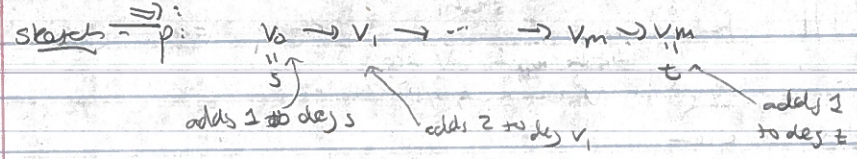 sketch - "⇒":
p: v₀ → v₁ → ... → vₘ → vₘ
" "
s t
adds 1 to deg s adds 2 to deg v₁ adds 1
to deg t